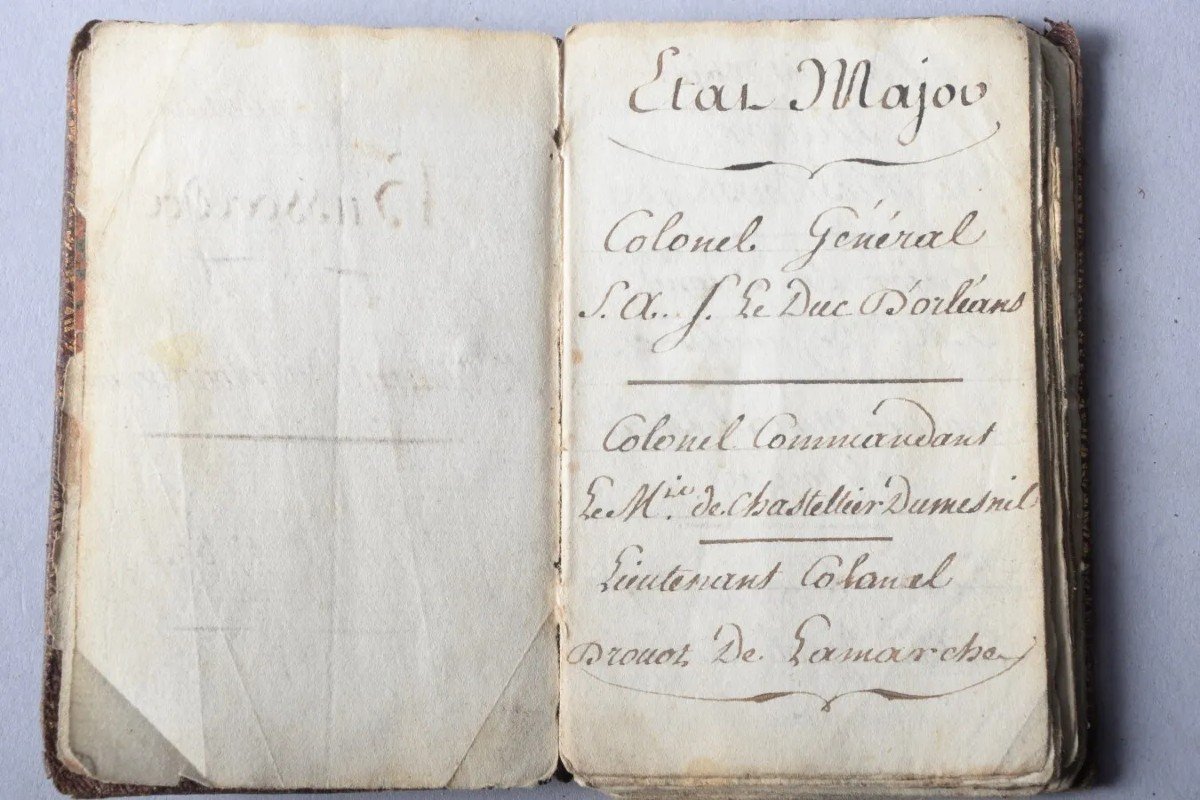 Etat Major
Colonel Général
S. A. S. Le Duc D'orléans
Colonel Commandant
Le M.is de Chasteltier Dumesnil
Lieutenant Colonel
Drouot De Lamarche